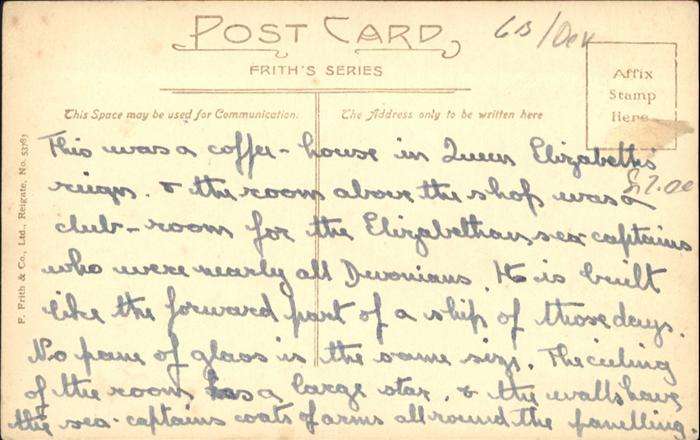 POST CARD
GB/Dev
FRITH'S SERIES
Affix
Stamp
Here
This Space may be used for Communication.
The Address only to be written here
F. Frith & Co., Ltd., Reigate, No. 53783
This was a coffee-house in Queen Elizabeth's
reign. & the room above the shop was a
£7.00
club-room for the Elizabethan sea-captains
who were nearly all Devonians. It is built
like the forward part of a ship of those days.
No pane of glass is the same size. The ceiling
of the room has a large star, & the walls have
the sea-captains coats of arms all round the panelling.